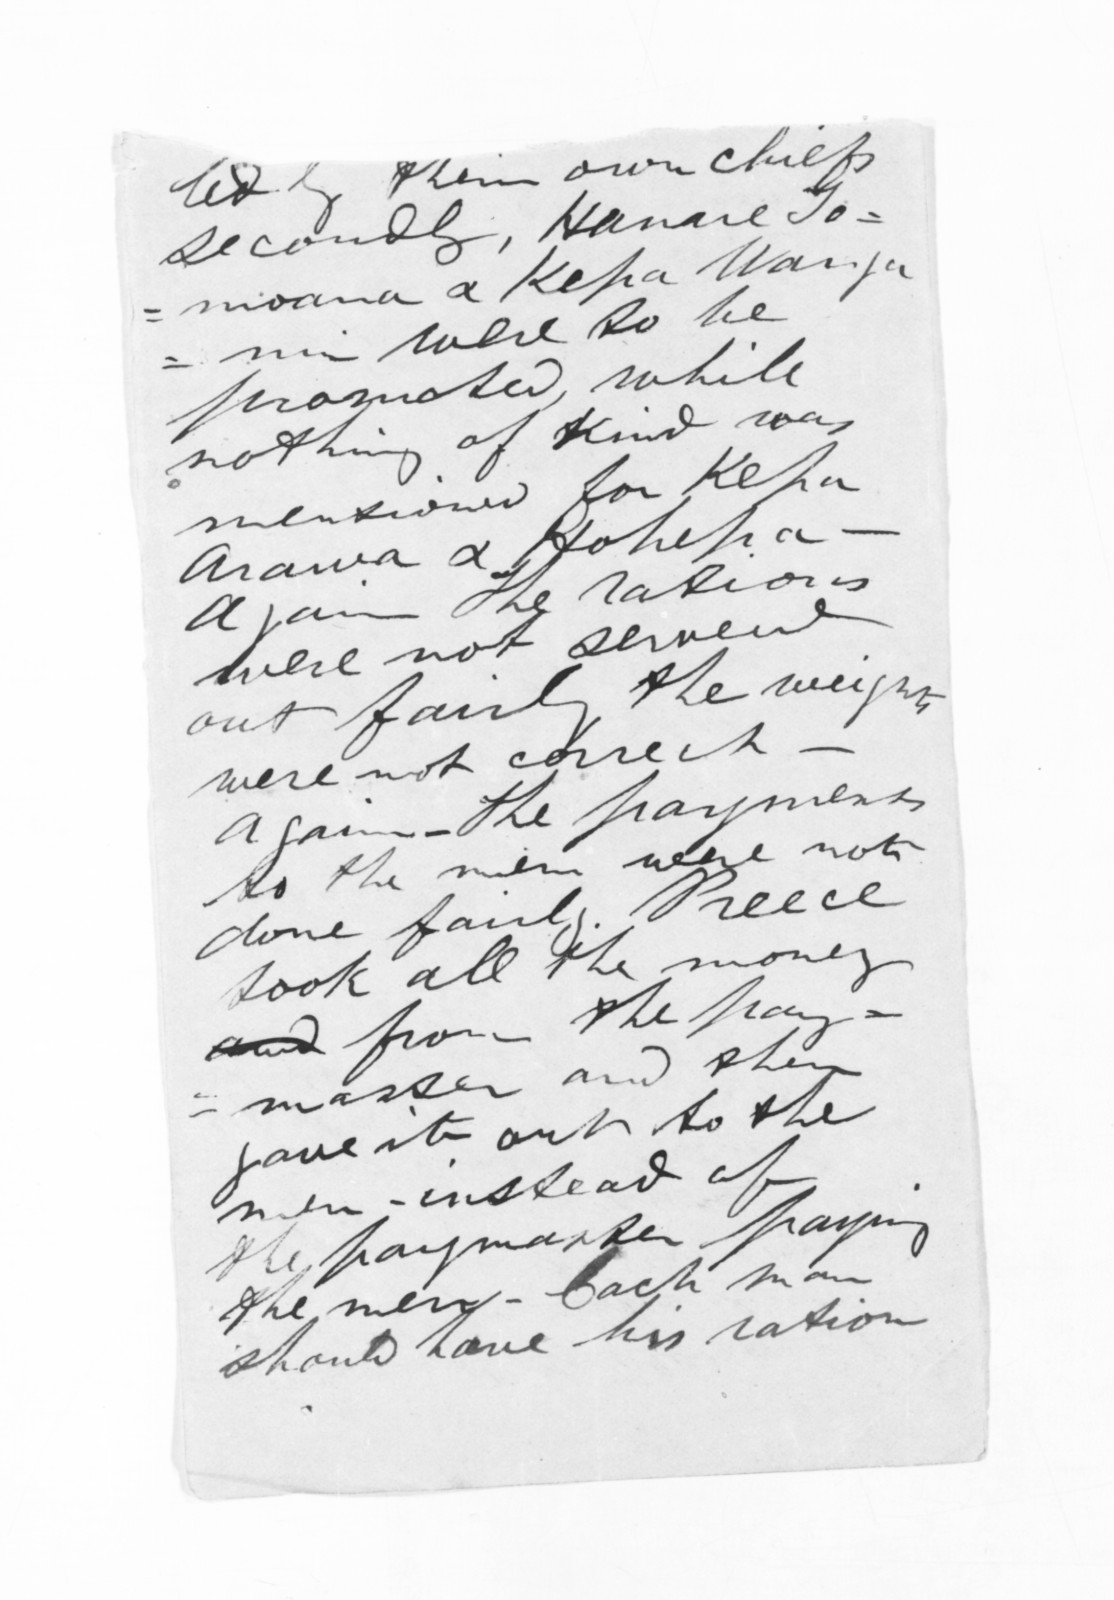 led by their own chiefs
secondly, Hanare To=
= moana & Kepa Wanga
= nin were to be
promoted, while
nothing of kind was
mentioned for Kepa
Arawa & Hohepa —
Again the rations
were not served
out fairly the weights
were not correct —
Again — the payments
to the men were not
done fairly. Preece
took all the money
and from the pay=
= master and then
gave it out to the
men - instead of
the paymaster paying
the men - Each man
should have his ration